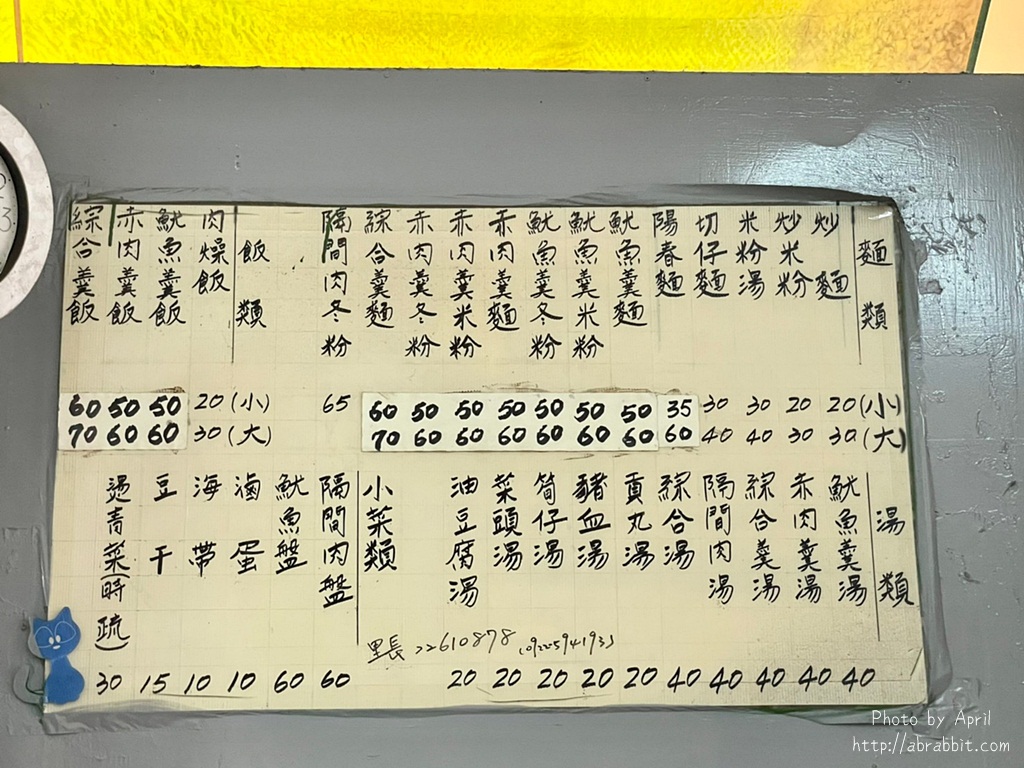 麵類
炒麵
炒米粉
米粉湯
切仔麵
陽春麵
魷魚羹麵
魷魚羹米粉
魷魚羹冬粉
赤肉羹麵
赤肉羹米粉
赤肉羹冬粉
綜合羹麵
隔間肉冬粉
飯類
肉燥飯
魷魚羹飯
赤肉羹飯
綜合羹飯
60 50 50 20(小) 65 60 50 50 50 50 50 50 35 30 30 20 20(小)
70 60 60 30(大) 70 60 60 60 60 60 60 60 40 40 30 30(大)
湯類
魷魚羹湯
赤肉羹湯
綜合羹湯
隔間肉湯
綜合湯
貢丸湯
豬血湯
筒仔湯
菜頭湯
油豆腐湯
小菜類
隔間肉盤
魷魚盤
滷蛋
海帶
豆干
燙青菜(時疏)
里長 22610878 (0922594193)
30 15 10 10 60 60 20 20 20 20 20 40 40 40 40 40
Photo by April
http://abrabbit.com